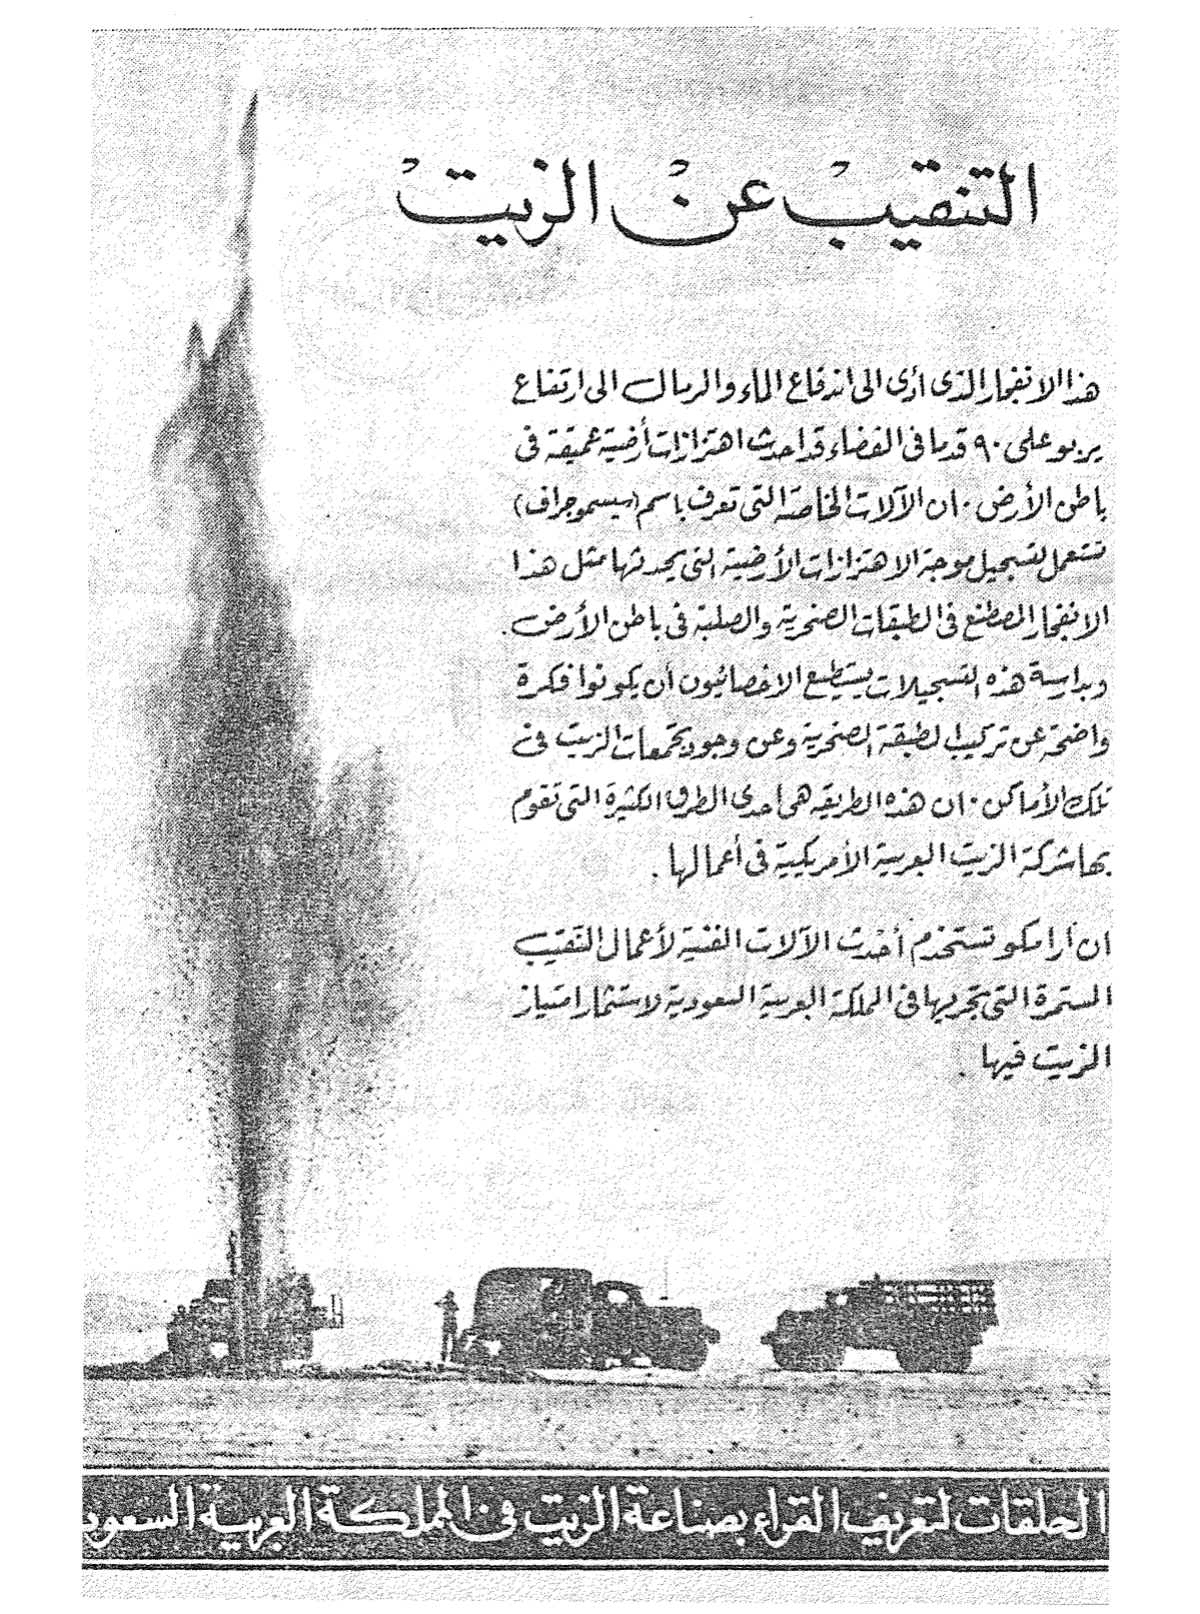 التنقيب عن الزيت
هذا الانفجار الذى أدى الى اندفاع الماء والرمال الى ارتفاع
يربو على ٩٠ قدما فى الفضاء قد احدث اهتزازات أرضية عميقة فى
باطن الأرض . ان الآلات الخاصة التى تعرف باسم (سيسموجراف)
تستعمل لتسجيل موجة الاهتزازات الأرضية التى يحدثها مثل هذا
الانفجار المصطنع فى الطبقات الصخرية والصلبة فى باطن الأرض .
وبدراسة هذه التسجيلات يستطيع الاخصائيون أن يكونوا فكرة
واضحة عن تركيب الطبقة الصخرية وعن وجود تجمعات الزيت فى
تلك الأماكن . ان هذه الطريقه هى احدى الطرق الكثيرة التى تقوم
بها شركة الزيت العربية الأمريكية فى أعمالها .
ان أرامكو تستخدم أحدث الآلات الفنية لأعمال التنقيب
المستمرة التى تجريها فى المملكة العربية السعودية لاستثمار امتياز
الزيت فيها .
الحلقات لتعريف القراء بصناعة الزيت فى المملكة العربية السعود